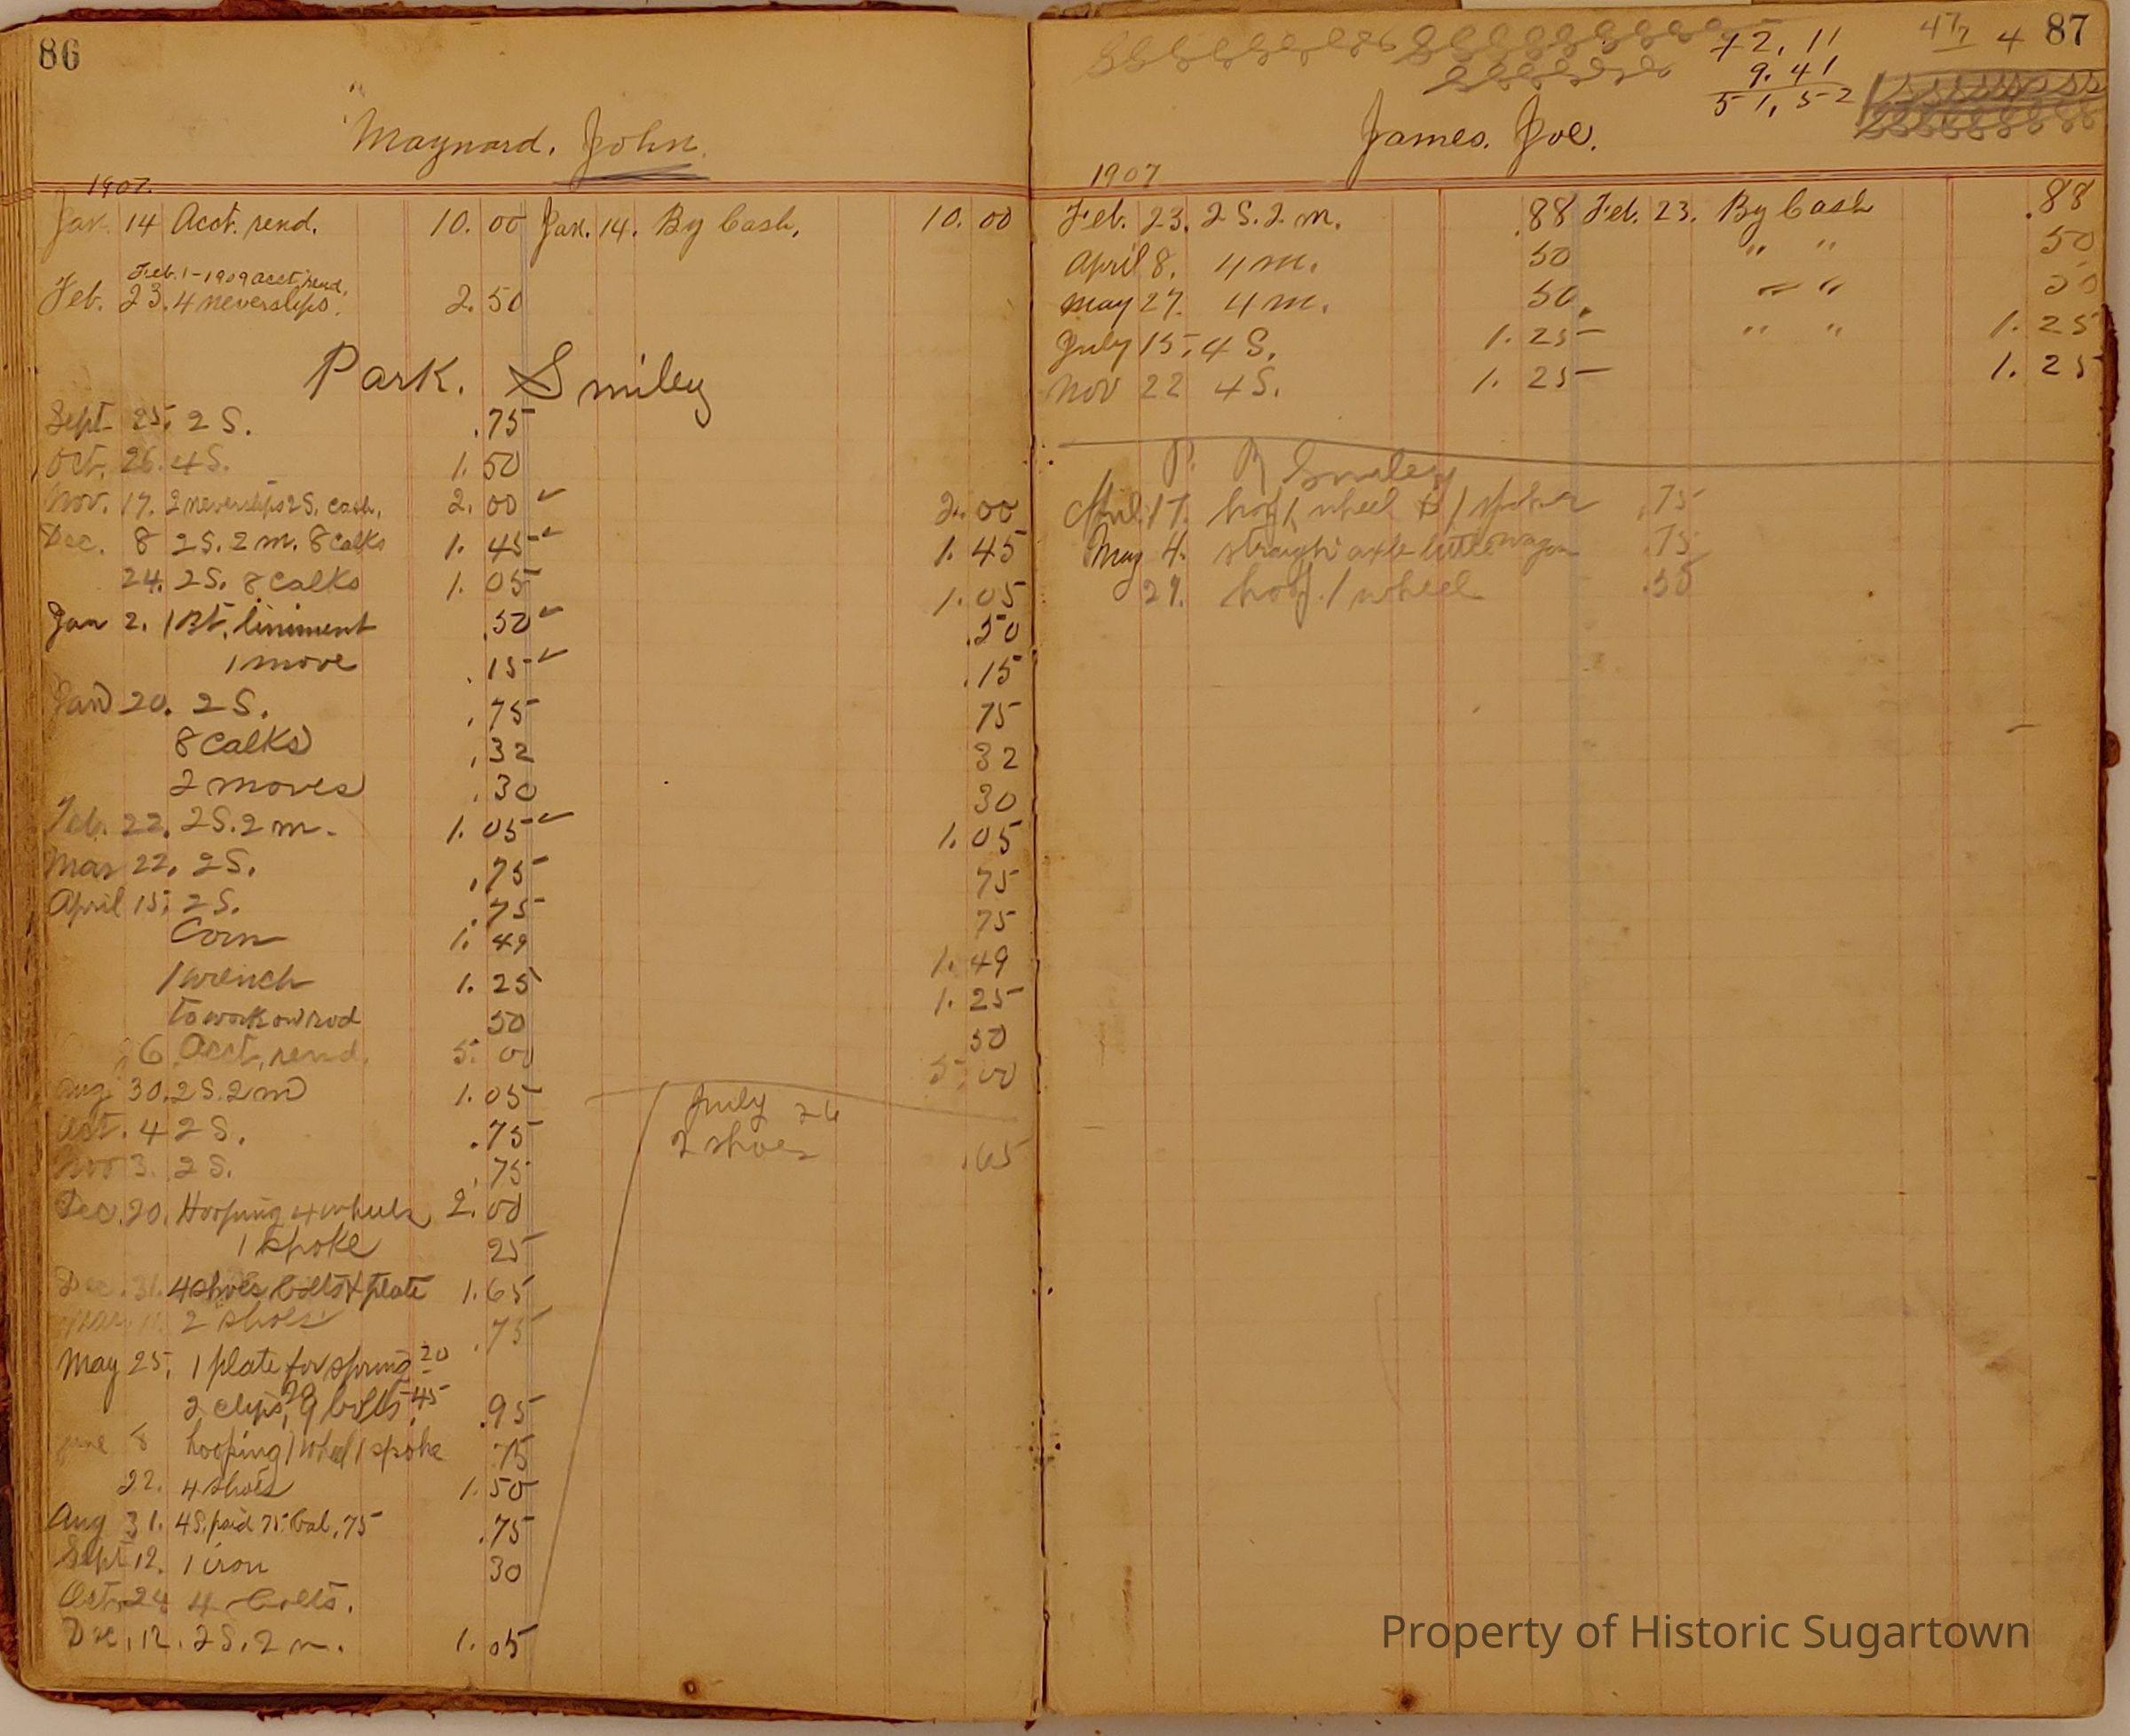 86
Maynard, John.
1907.
Jan. 14 Acct. rend. 10.00 Jan. 14. By Cash, 10.00
Feb. 1-1909 acct, rend.
Feb. 23. 4 neverslips. 2.50
Park. Smiley
Sept 25, 2 S. .75
Oct. 26. 4 S. 1.50
Nov. 17. 2 neverslips 2 S. Cash, 2.00 ✓ 2.00
Dec. 8 2 S. 2 m. 8 Calks 1.45 ✓ 1.45
24. 2 S. 8 Calks 1.05 1.05
Jan 2. 1 Bt. liniment .50 ✓ .50
1 move .15 ✓ .15
Jan 20. 2 S. .75 75
8 Calks .32 32
2 moves .30 30
Feb. 22. 2 S. 2 m. 1.05 ✓ 1.05
Mar 22. 2 S. .75 75
April 15, 2 S. .75 75
Corn 1.49 1.49
1 wrench 1.25 1.25
to work on rod 50 50
6 Acct, rend. 5.00 5.00
Aug 30. 2 S. 2 m 1.05
July 26
Oct. 4 2 S. .75
2 shoes .65
Nov 3. 2 S. .75
Dec. 20. Hooping 4 wheels 2.00
1 spoke 25
Dec. 31. 4 shoes bolts & plate 1.65
Mar 2 shoes .75
May 25, 1 plate for spring 20
2 clips, 9 bolts 45 .95
June 8 hooping 1 wheel 1 spoke 75
22. 4 shoes 1.50
Aug 31. 4 S. paid 75. Bal. 75 .75
Sept 12. 1 iron 30
Oct. 24 4 bolts.
Dec. 12. 2 S. 2 m. 1.05
87
47 4
72.11
9.41
51,52
James. Joe.
1907
Feb. 23. 2 S. 2 m. .88 Feb. 23. By Cash .88
April 8. 4 m. 50 " " 50
May 27. 4 m. 50. " " 50
July 15, 4 S. 1.25 " " 1.25
Nov 22 4 S. 1.25 1.25
P. R Smiley
April 17. hoof 1 wheel & 1 spoke .75
May 4. straight axle little wagon .75
29. hoof. 1 wheel .50
Property of Historic Sugartown